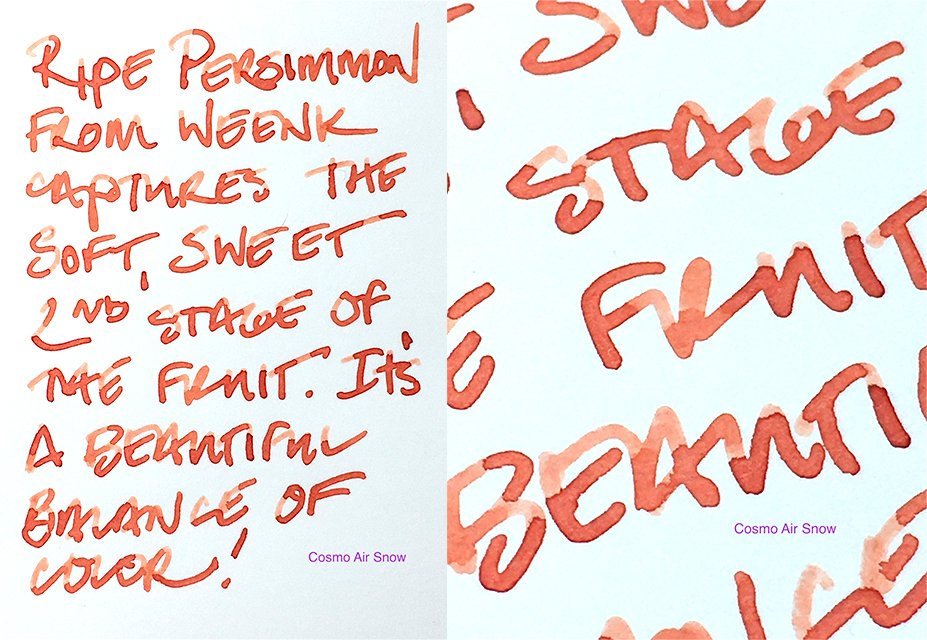 RIPE PERSIMMON
FROM WEENK
CAPTURES THE
SOFT, SWEET
2ND STAGE OF
THE FRUIT. It's
A BEAUTIFUL
BALANCE OF
COLOR!
Cosmo Air Snow
SWE
, STAGE
E FRUIT
BEAUTI
Cosmo Air Snow
NCE